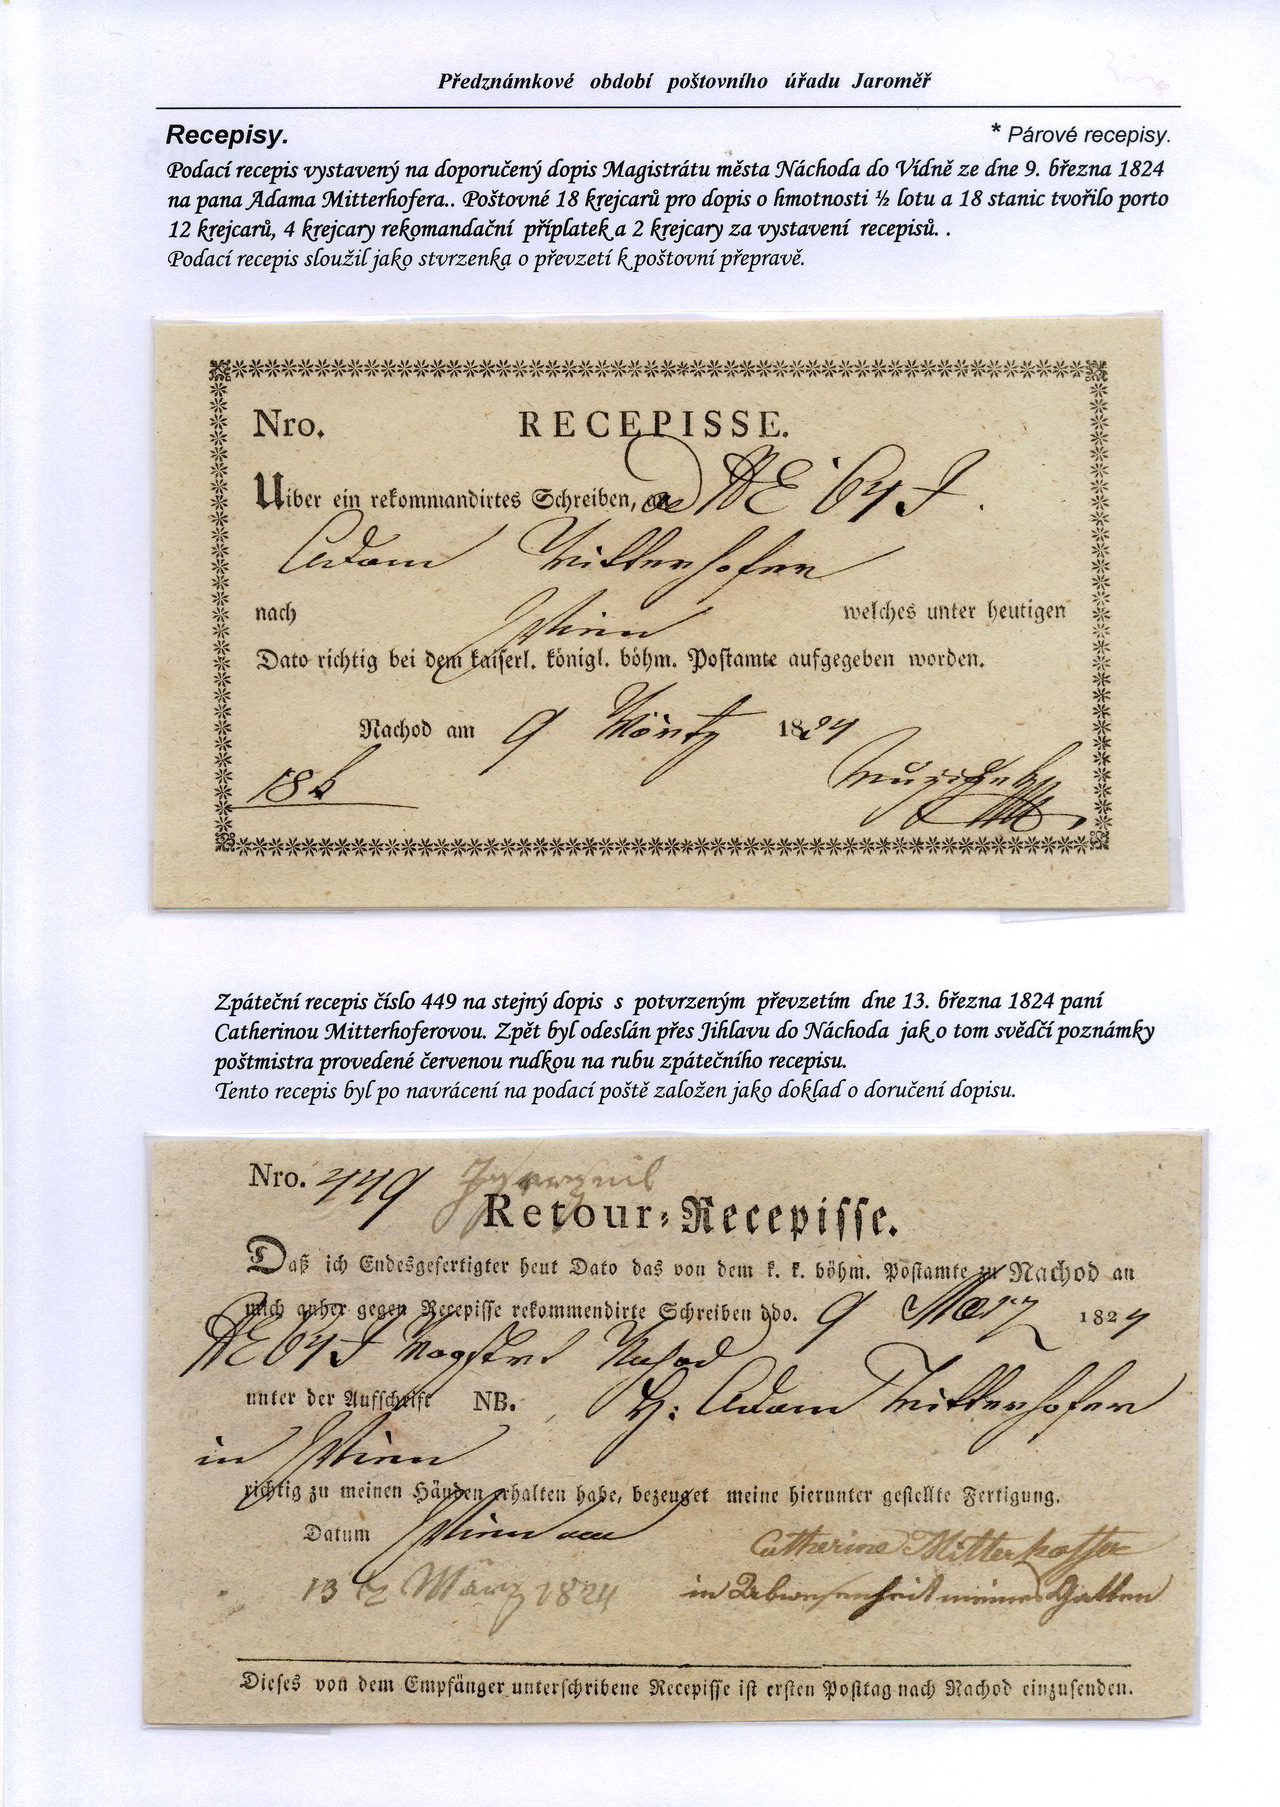 Předznámkové období poštovního úřadu Jaroměř
Recepisy.
* Párové recepisy.
Podací recepis vystavený na doporučený dopis Magistrátu města Náchoda do Vídně ze dne 9. března 1824
na pana Adama Mitterhofera.. Poštovné 18 krejcarů pro dopis o hmotnosti ½ lotu a 18 stanic tvořilo porto
12 krejcarů, 4 krejcary rekomandační příplatek a 2 krejcary za vystavení recepisů. .
Podací recepis sloužil jako stvrzenka o převzetí k poštovní přepravě.
Nro. RECEPISSE.
Uiber ein rekommandirtes Schreiben,
Adam Mitterhofer
nach Wien welches unter heutigen
Dato richtig bei dem kaiserl. königl. böhm. Postamte aufgegeben worden.
Nachod am 9 März 1824
18 k
Zpáteční recepis číslo 449 na stejný dopis s potvrzeným převzetím dne 13. března 1824 paní
Catherinou Mitterhoferovou. Zpět byl odeslán přes Jihlavu do Náchoda jak o tom svědčí poznámky
poštmistra provedené červenou rudkou na rubu zpátečního recepisu.
Tento recepis byl po navrácení na podací poště založen jako doklad o doručení dopisu.
Nro. 449
Retour-Recepisse.
Daß ich Endesgefertigter heut Dato das von dem k. k. böhm. Postamte zu Nachod an
mich anher gegen Recepisse rekommendirte Schreiben ddo. 9 März 1824
Nachod
unter der Aufschrift NB. H: Adam Mitterhofer
in Wien
richtig zu meinen Händen erhalten habe, bezeuget meine hierunter gestellte Fertigung.
Datum Wien am
13 März 1824
Catherine Mitterhoffer
in Abwesenheit meines Gatten
Dieses von dem Empfänger unterschribene Recepisse ist ersten Posttag nach Nachod einzusenden.